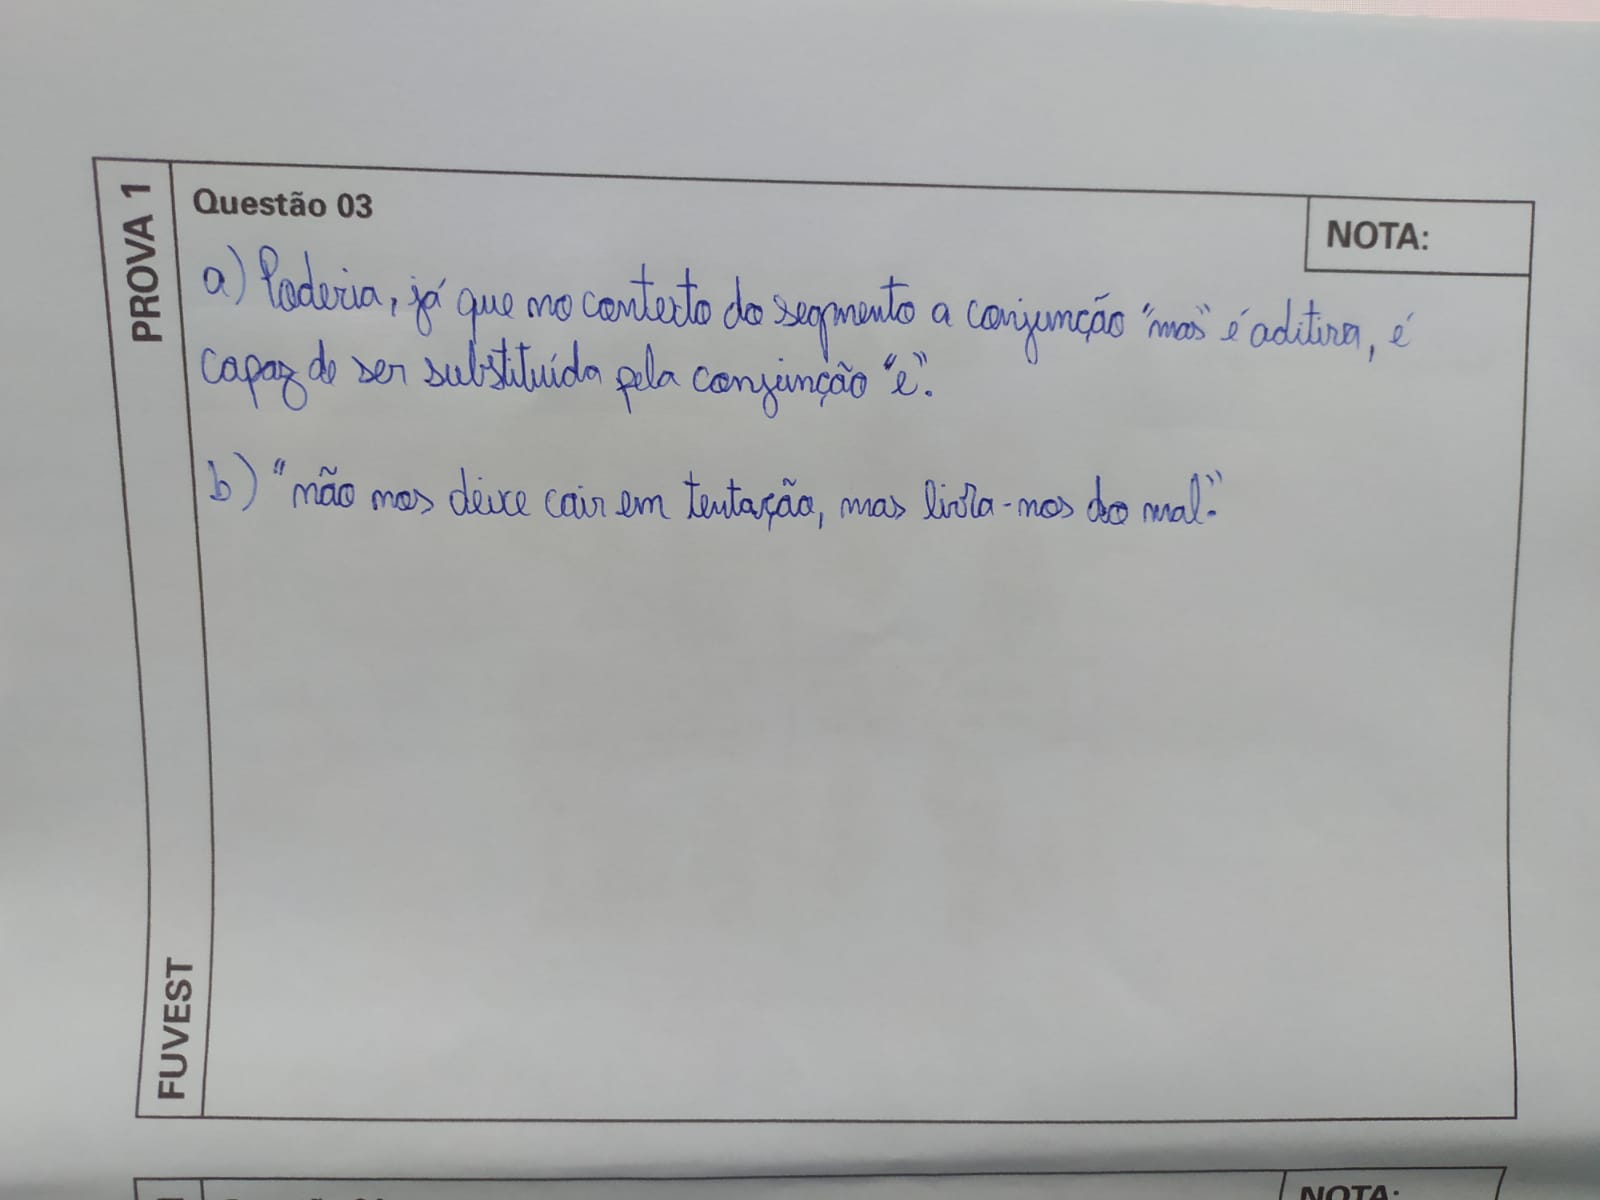 PROVA 1
Questão 03
NOTA:
a) Poderia, já que no contexto do segmento a conjunção "mas" é aditiva, é
capaz de ser substituída pela conjunção "e".
b) "não nos deixe cair em tentação, mas livra-nos do mal."
FUVEST
NOTA: